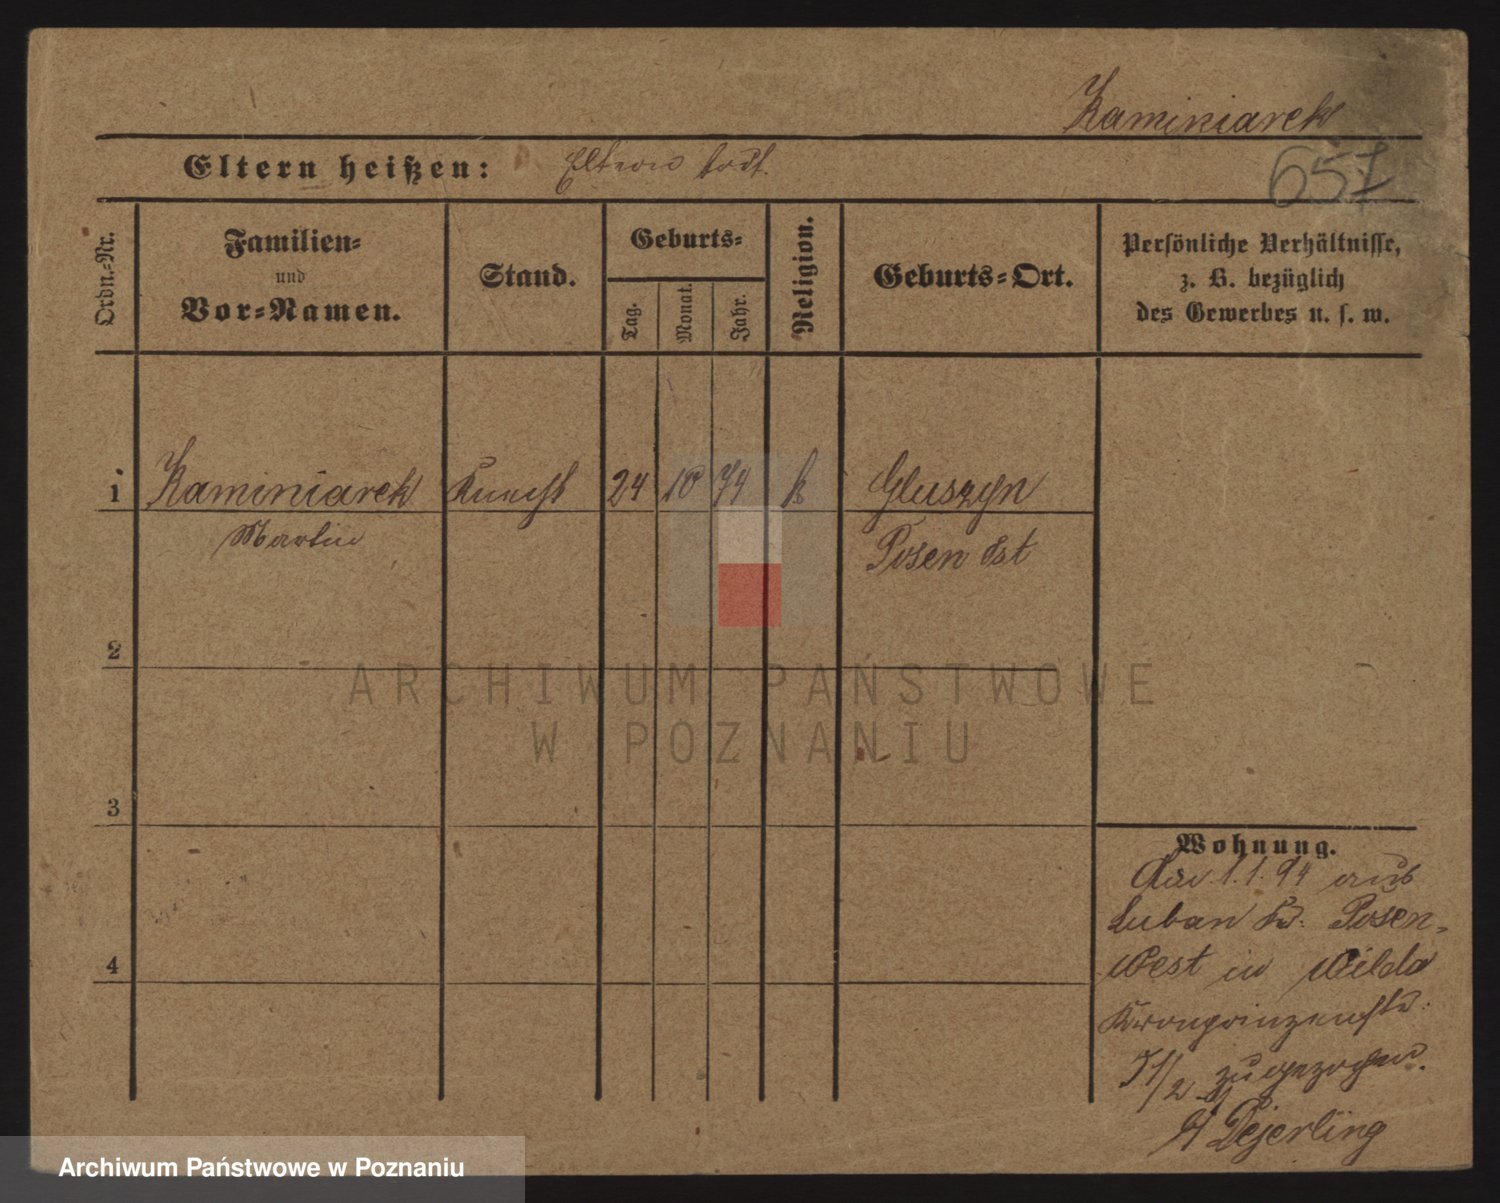 Kaminiarek
Eltern heißen: Eltern todt.
657
Ordn.-Nr.
Familien-
und
Vor-Namen.
Stand.
Geburts-
Tag.
Monat.
Jahr.
Religion.
Geburts-Ort.
Persönliche Verhältnisse,
z. B. bezüglich
des Gewerbes u. s. w.
1 Kaminiarek Knecht 24 10 74 k Gluszyn
Martin
Posen Ost
2
3
4
Wohnung.
1.1.94 aus
Luban Kr. Posen-
West in Wilda
Kronprinzenstr.
1/2 zugezogen.
Dejerling
ARCHIWUM PAŃSTWOWE
W POZNANIU
Archiwum Państwowe w Poznaniu